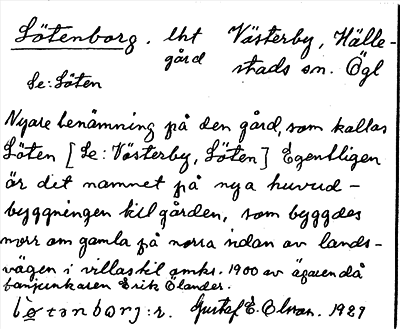 Sötenborg. lht Västerby, Hälle-
gård stads sn. Ögl
Se: Söten
Nyare benämning på den gård, som kallas
Söten [Se: Västerby, Söten] Egentligen
är det namnet på nya huvud-
byggningen till gården, som byggdes
norr om gamla på norra sidan av lands-
vägen i villastil omkr. 1900 av ägaren då
fanjunkaren Erik Ölander.
Gustaf E. Olsson. 1929